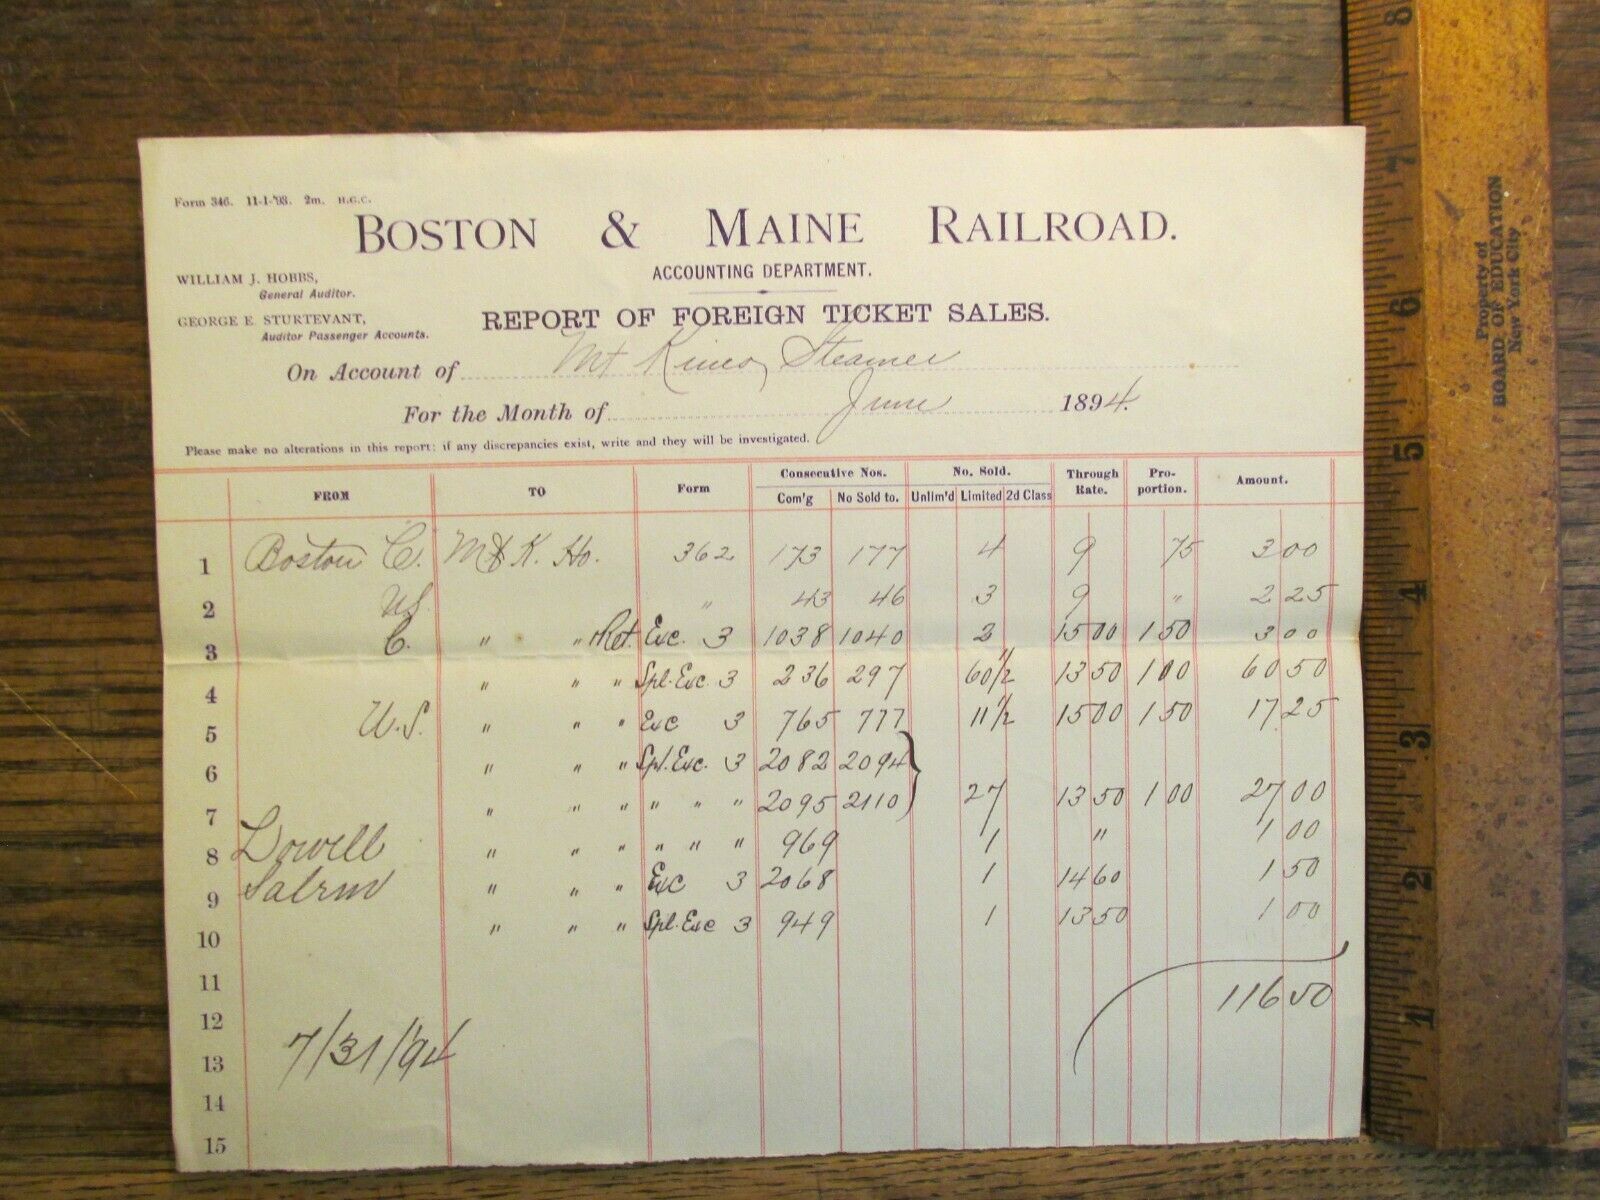 Form 346. 11-1-'93. 2m. H.G.C.
BOSTON & MAINE RAILROAD.
ACCOUNTING DEPARTMENT.
WILLIAM J. HOBBS,
General Auditor.
GEORGE E. STURTEVANT,
Auditor Passenger Accounts.
REPORT OF FOREIGN TICKET SALES.
On Account of Mt Kineo Steamer
For the Month of June 1894.
Please make no alterations in this report; if any discrepancies exist, write and they will be investigated.
FROM TO Form Consecutive Nos. No. Sold. Through Rate. Pro-portion. Amount.
Com'g No Sold to. Unlim'd Limited 2d Class
1 Boston C. Mt K. Ho. 362 173 177 4 9 75 3 00
2 U.S. " 43 46 3 9 " 2 25
3 C. " " Ret. Exc. 3 1038 1040 2 15 00 1 50 3 00
4 " " " Spl. Exc. 3 236 297 60 1/2 13 50 1 00 60 50
5 U.S. " " " Exc 3 765 777 11 1/2 15 00 1 50 17 25
6 " " " Spl. Exc. 3 2082 2094
7 " " " " " " 2095 2110 27 13 50 1 00 27 00
8 Lowell " " " " " " 969 1 " 1 00
9 Salem " " " Exc 3 2068 1 14 60 1 50
10 " " " Spl. Exc 3 949 1 13 50 1 00
11 116 50
12
13 7/31/'94
14
15
8
7
6
5
4
3
2
1
Property of
BOARD OF EDUCATION
New York City